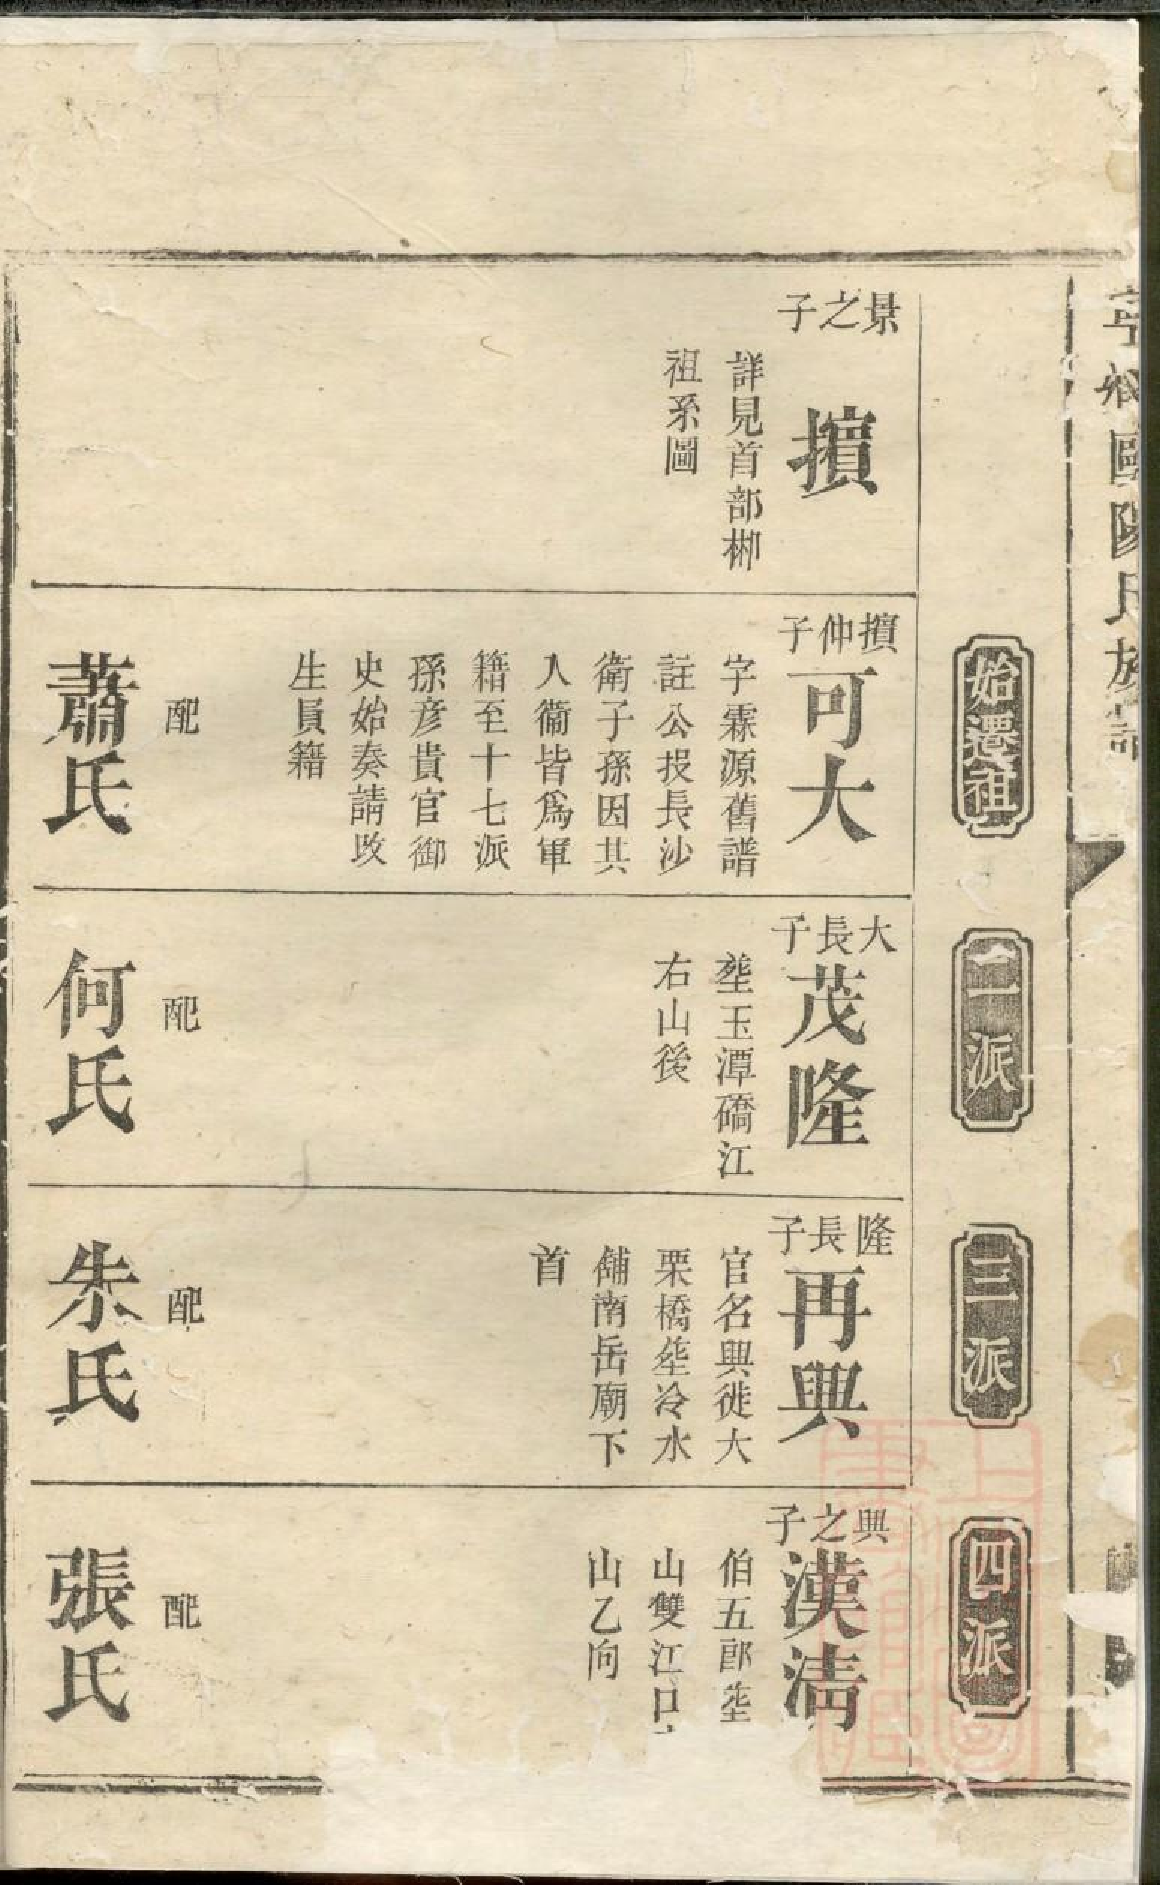 歐陽氏族譜
始遷祖
二派
三派
四派
景之子
擯
詳見首部郴
祖系圖
擯仲子
可大
字霖源舊譜
註公投長沙
衛子孫因其
入衞皆為軍
籍至十七派
孫彦貴官御
史始奏請改
生員籍
配
蕭氏
大長子
茂隆
塟玉潭礄江
右山後
配
何氏
隆長子
再興
官名興徙大
栗橋塟冷水
舖南岳廟下
首
配
朱氏
興之子
漢清
伯五郎塟
山雙江口
山乙向
配
張氏